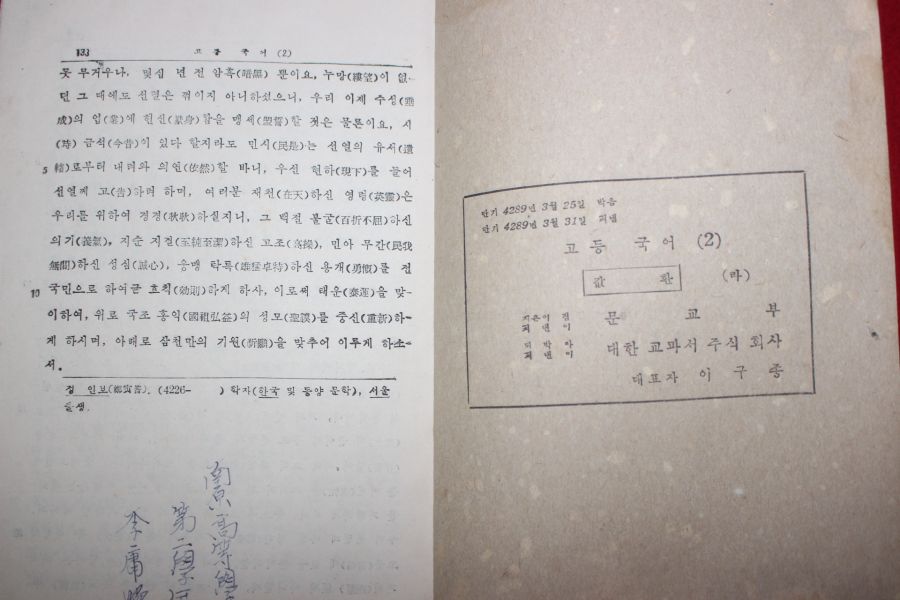 133 고등 국어 (2)
못 무거우나, 몇십 년 전 암흑(暗黑) 뿐이요, 누망(縷望)이 없-
던 그 때에도 선열은 꺾이지 아니하셨으니, 우리 이제 수성(垂
成)의 업(業)에 헌신(獻身)함을 맹세(盟誓)할 것은 물론이요, 시
(時) 금석(今昔)이 있다 할지라도 민시(民是)는 선열의 유서(遺
5 緖)로부터 내려와 의연(依然)할 바니, 우선 현하(現下)를 들어
선열께 고(告)하려 하며, 여러분 재천(在天)하신 영령(英靈)은
우리를 위하여 경경(耿耿)하실지니, 그 백절 불굴(百折不屈)하신
의기(義氣), 지순 지결(至純至潔)하신 고조(高操), 민아 무간(民我
無間)하신 성심(誠心), 웅맹 탁특(雄猛卓特)하신 용개(勇慨)를 전
10 국민으로 하여금 효칙(効則)하게 하사, 이로써 태운(泰運)을 맞-
이하여, 위로 국조 홍익(國祖弘益)의 성모(聖謨)를 중신(重新)하-
게 하시며, 아래로 삼천만의 기원(祈願)을 맞추어 이루게 하소-
서.
정 인보(鄭寅普). (4226- ) 학자(한국 및 동양 문학), 서울
출생.
高等
第二
李庸
단기 4289년 3월 25일 박음
단기 4289년 3월 31일 펴냄
고등 국어 (2)
값 환 (라)
지은이 겸
펴낸이 문교부
되박아
펴낸이 대한 교과서 주식 회사
대표자 이구종